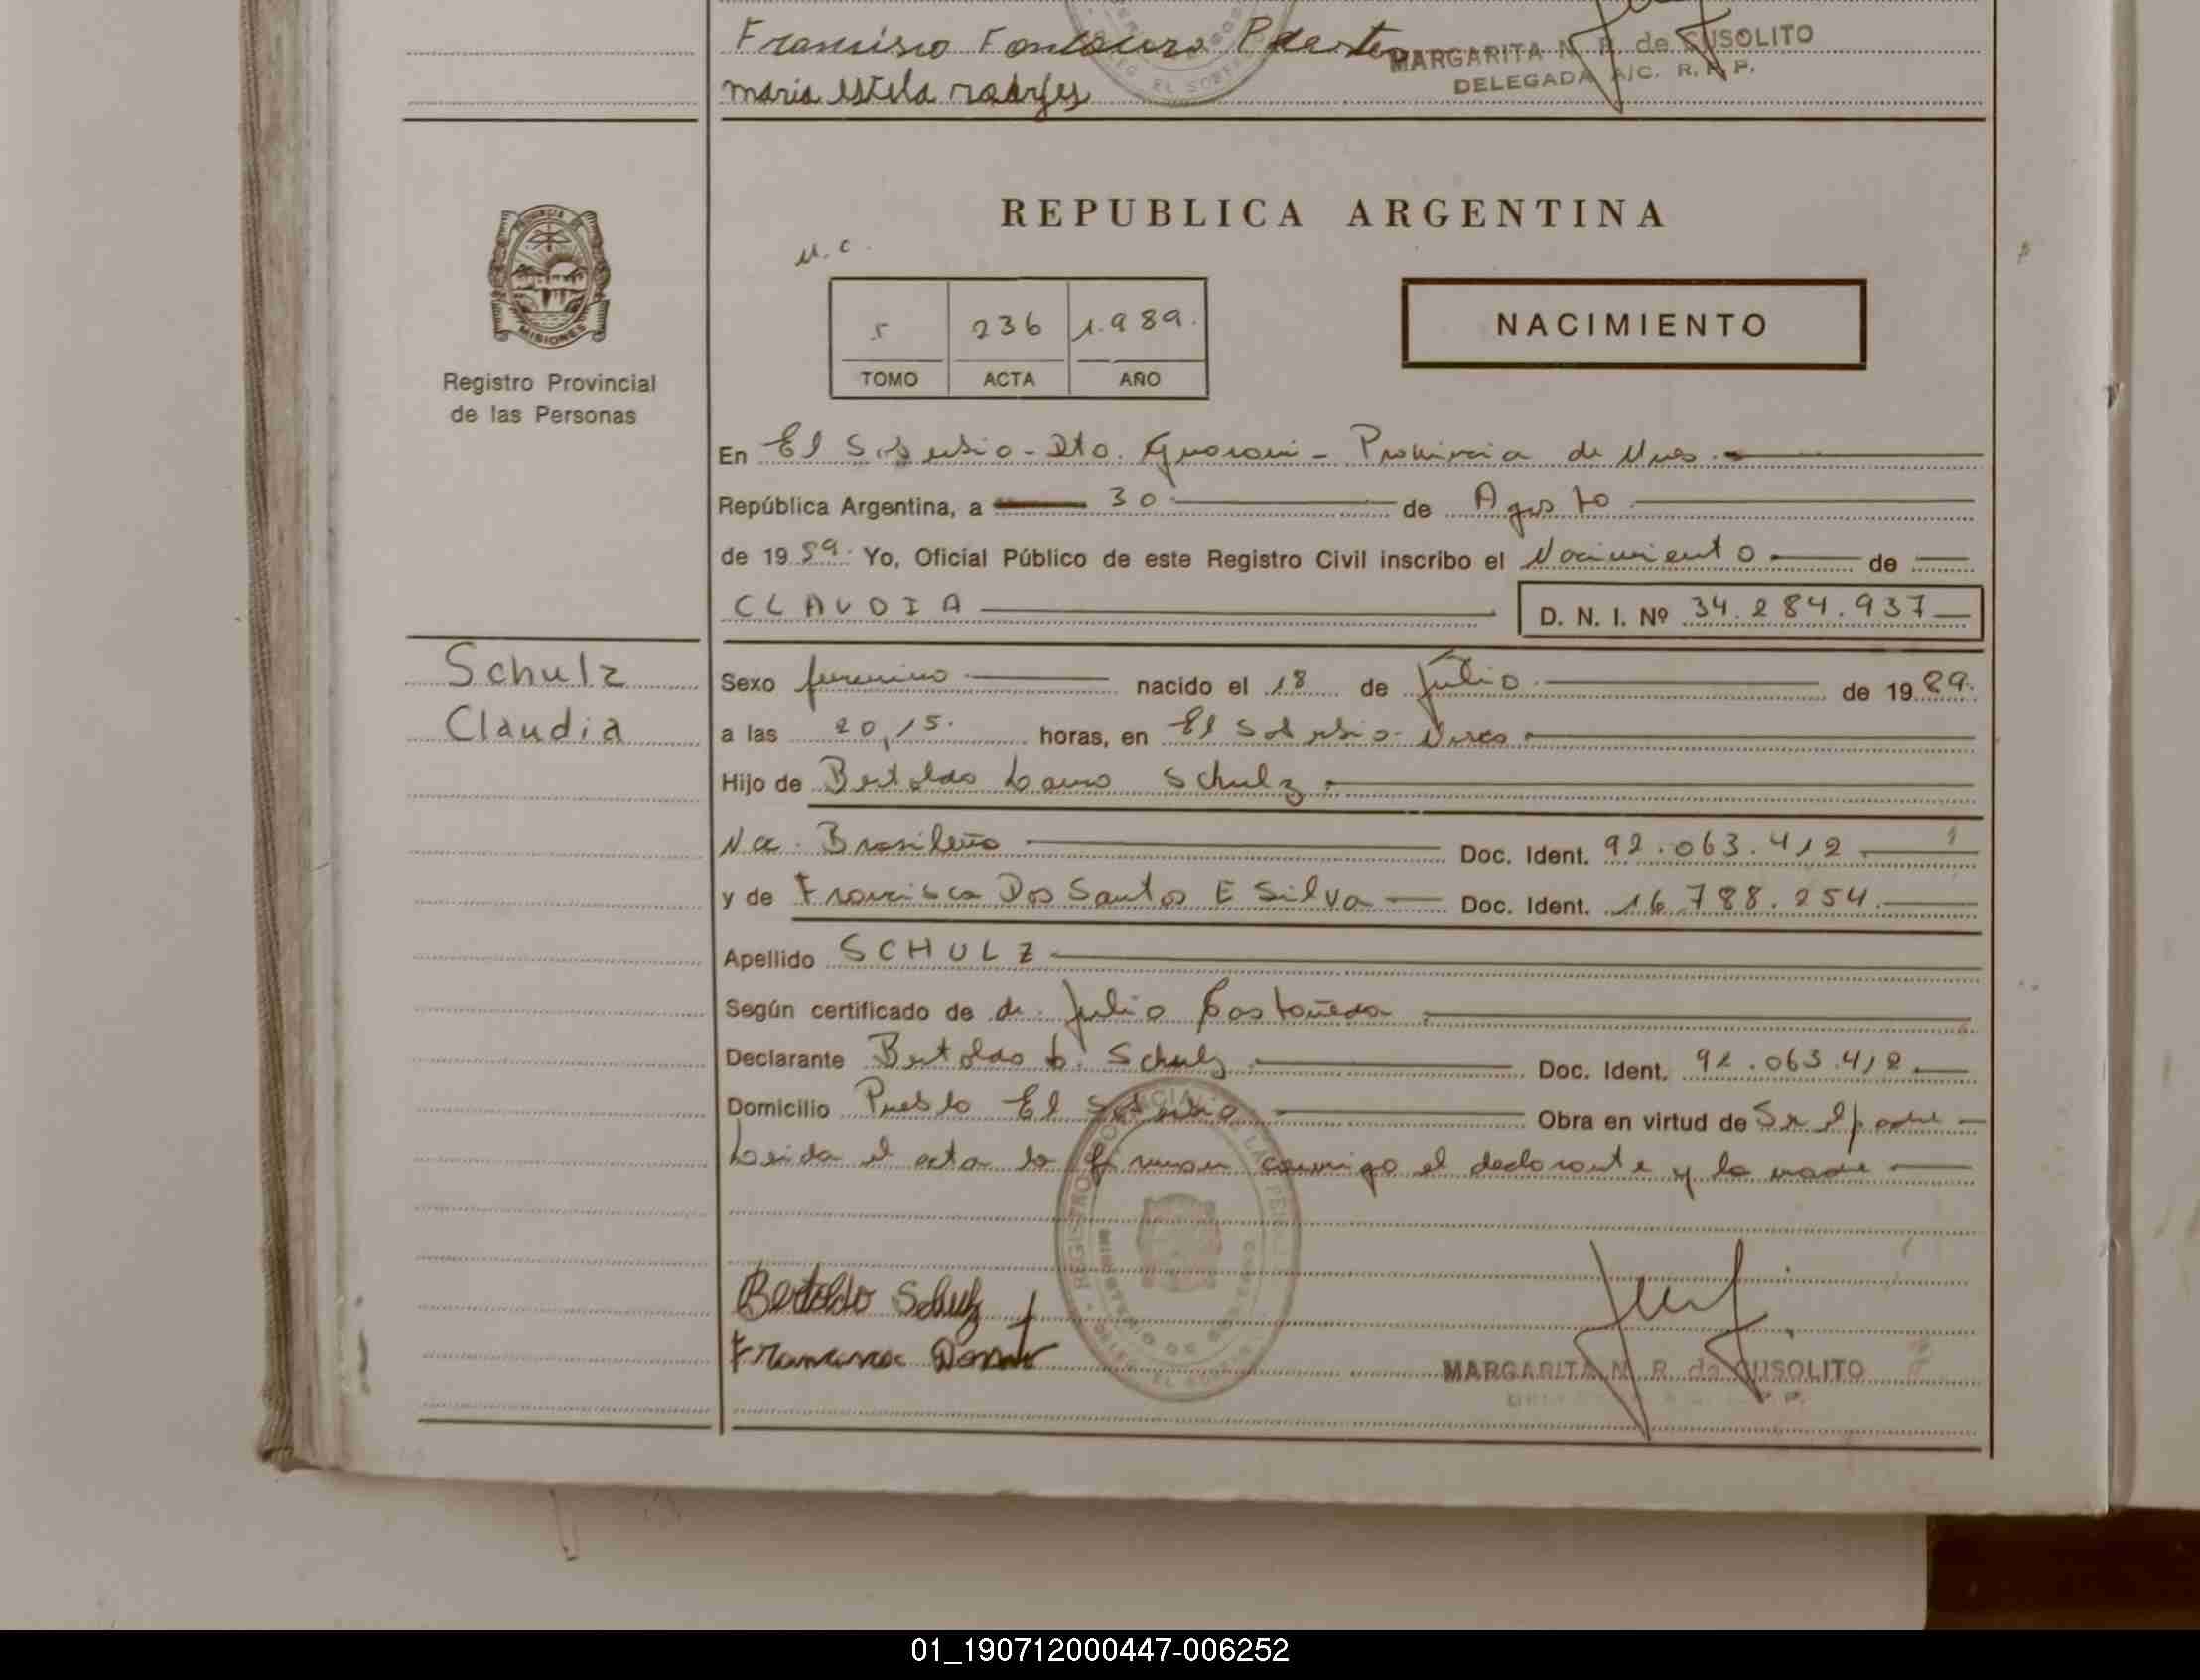 Francisco
MARGARITA N. R. de CUSOLITO
DELEGADA A/C. R. P. P.
maria estela
PROVINCIA DE
MISIONES
Registro Provincial
de las Personas
REPUBLICA ARGENTINA
M. C.
5 236 1.989.
TOMO ACTA AÑO
NACIMIENTO
En El Soberbio - Dto. Guarani - Provincia de Mnes.
República Argentina, a 30 de Agosto
de 19 89. Yo, Oficial Público de este Registro Civil inscribo el Nacimiento de
CLAUDIA D. N. I. Nº 34.284.937
Schulz
Claudia
Sexo femenino nacido el 18 de Julio de 19 89.
a las 20,15. horas, en El Soberbio - Mnes
Hijo de Bertoldo Lauro Schulz
Na. Brasileño Doc. Ident. 92.063.412
y de Francisca Dos Santos E Silva Doc. Ident. 16.788.254.
Apellido SCHULZ
Según certificado de dr. Julio Castañeda
Declarante Bertoldo L. Schulz Doc. Ident. 92.063.412
Domicilio Pueblo El Soberbio Obra en virtud de Ser el padre
Leida el acta la firman conmigo el declarante y la madre
Bertoldo Schulz
Francisca
MARGARITA N. R. de CUSOLITO
01_190712000447-006252